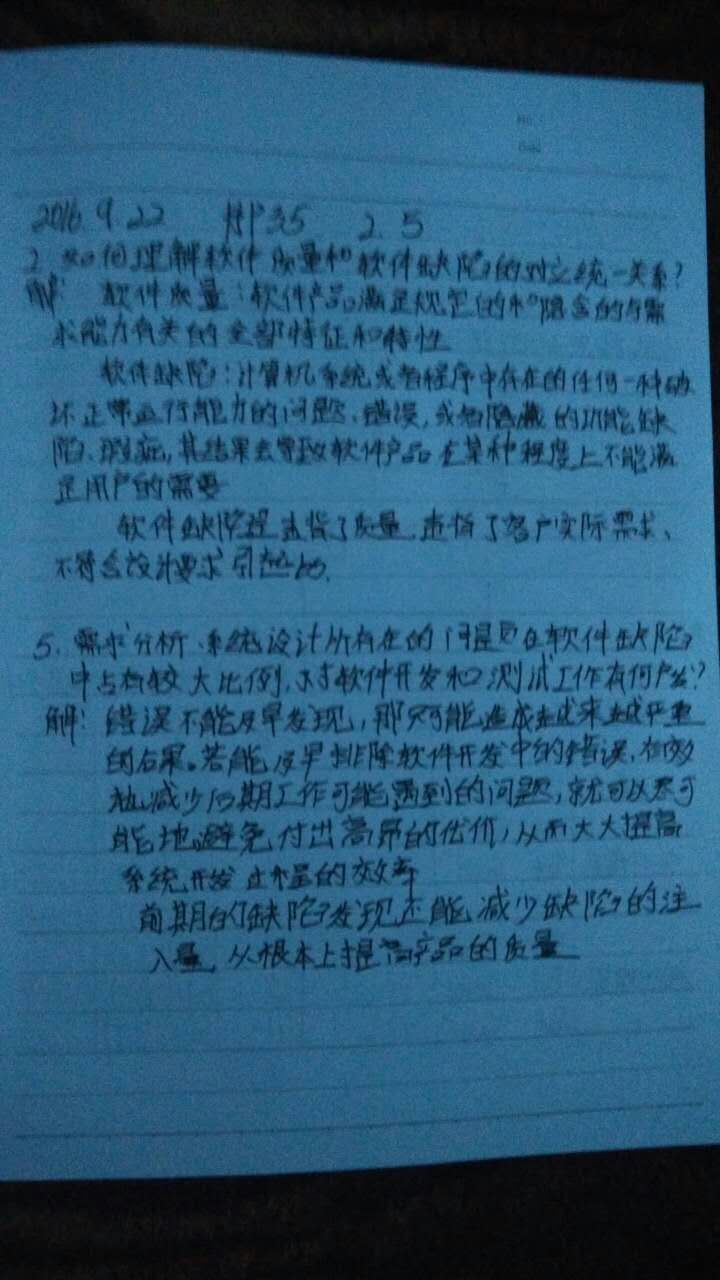 2016.9.22 P35 2.5
2. 如何理解软件质量和软件缺陷的对立统一关系?
解: 软件质量:软件产品满足规定的和隐含的与需
求能力有关的全部特征和特性
软件缺陷:计算机系统或者程序中存在的任何一种破
坏正常运行能力的问题、错误,或者隐藏的功能缺
陷、瑕疵,其结果会导致软件产品在某种程度上不能满
足用户的需要
软件缺陷违背了质量,违背了客户实际需求、
不符合设计要求引起的.
5. 需求分析、系统设计所存在的问题在软件缺陷
中占有较大比例,对软件开发和测试工作有何启发?
解: 错误不能及早发现,那只可能造成越来越严重
的后果。若能及早排除软件开发中的错误,有效
地减少后期工作可能遇到的问题,就可以尽可
能地避免付出高昂的代价,从而大大提高
系统开发过程的效率
前期的缺陷发现还能减少缺陷的注
入量,从根本上提高产品的质量